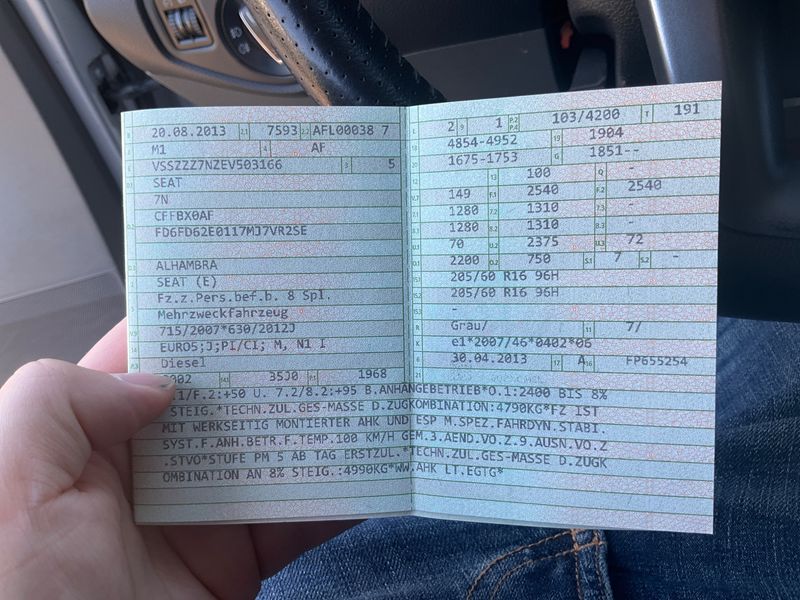 B 20.08.2013 2.1 7593 2.2 AFL00038 7
J M1 4 AF
E VSSZZZ7NZEV503166 3 5
SEAT
7N
CFFBX0AF
D.2 FD6FD62E0117MJ7VR2SE
ALHAMBRA
SEAT (E)
Fz.z.Pers.bef.b. 8 Spl.
Mehrzweckfahrzeug
715/2007*630/2012J
EURO5;J;PI/CI; M, N1 I
Diesel
0002 35J0 1968
L 2 9 1 P.2 P.4 103/4200 T 191
18 4854-4952 19 1904
20 1675-1753 G 1851--
12 - 13 100 Q -
V.7 149 F.1 2540 F.2 2540
7.1 1280 7.2 1310 7.3 -
8.1 1280 8.2 1310 8.3 -
U.1 70 U.2 2375 U.3 72
O.1 2200 O.2 750 S.1 7 S.2 -
15.1 205/60 R16 96H
15.2 205/60 R16 96H
15.3 -
R Grau/ 11 7/
K e1*2007/46*0402*06
6 30.04.2013 17 A 16 FP655254
21
.1/F.2:+50 U. 7.2/8.2:+95 B.ANHÄNGEBETRIEB*O.1:2400 BIS 8%
STEIG.*TECHN.ZUL.GES-MASSE D.ZUGKOMBINATION:4790KG*FZ IST
MIT WERKSEITIG MONTIERTER AHK UND ESP M.SPEZ.FAHRDYN.STABI.
SYST.F.ANH.BETR.F.TEMP.100 KM/H GEM.3.AEND.VO.Z.9.AUSN.VO.Z
.STVO*STUFE PM 5 AB TAG ERSTZUL.*TECHN.ZUL.GES-MASSE D.ZUGK
OMBINATION AN 8% STEIG.:4990KG*WW.AHK LT.EGTG*